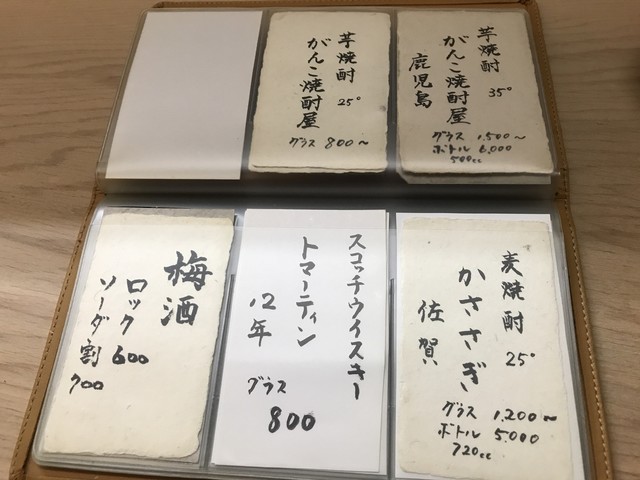 芋焼酎 35°
がんこ焼酎屋
鹿児島
グラス 1,500~
ボトル 6,000
500cc
芋焼酎 25°
がんこ焼酎屋
グラス 800~
麦焼酎 25°
かささぎ
佐賀
グラス 1,200~
ボトル 5,000
720cc
スコッチウイスキー
トマーティン
12年
グラス
800
梅酒
ロック 600
ソーダ割 700